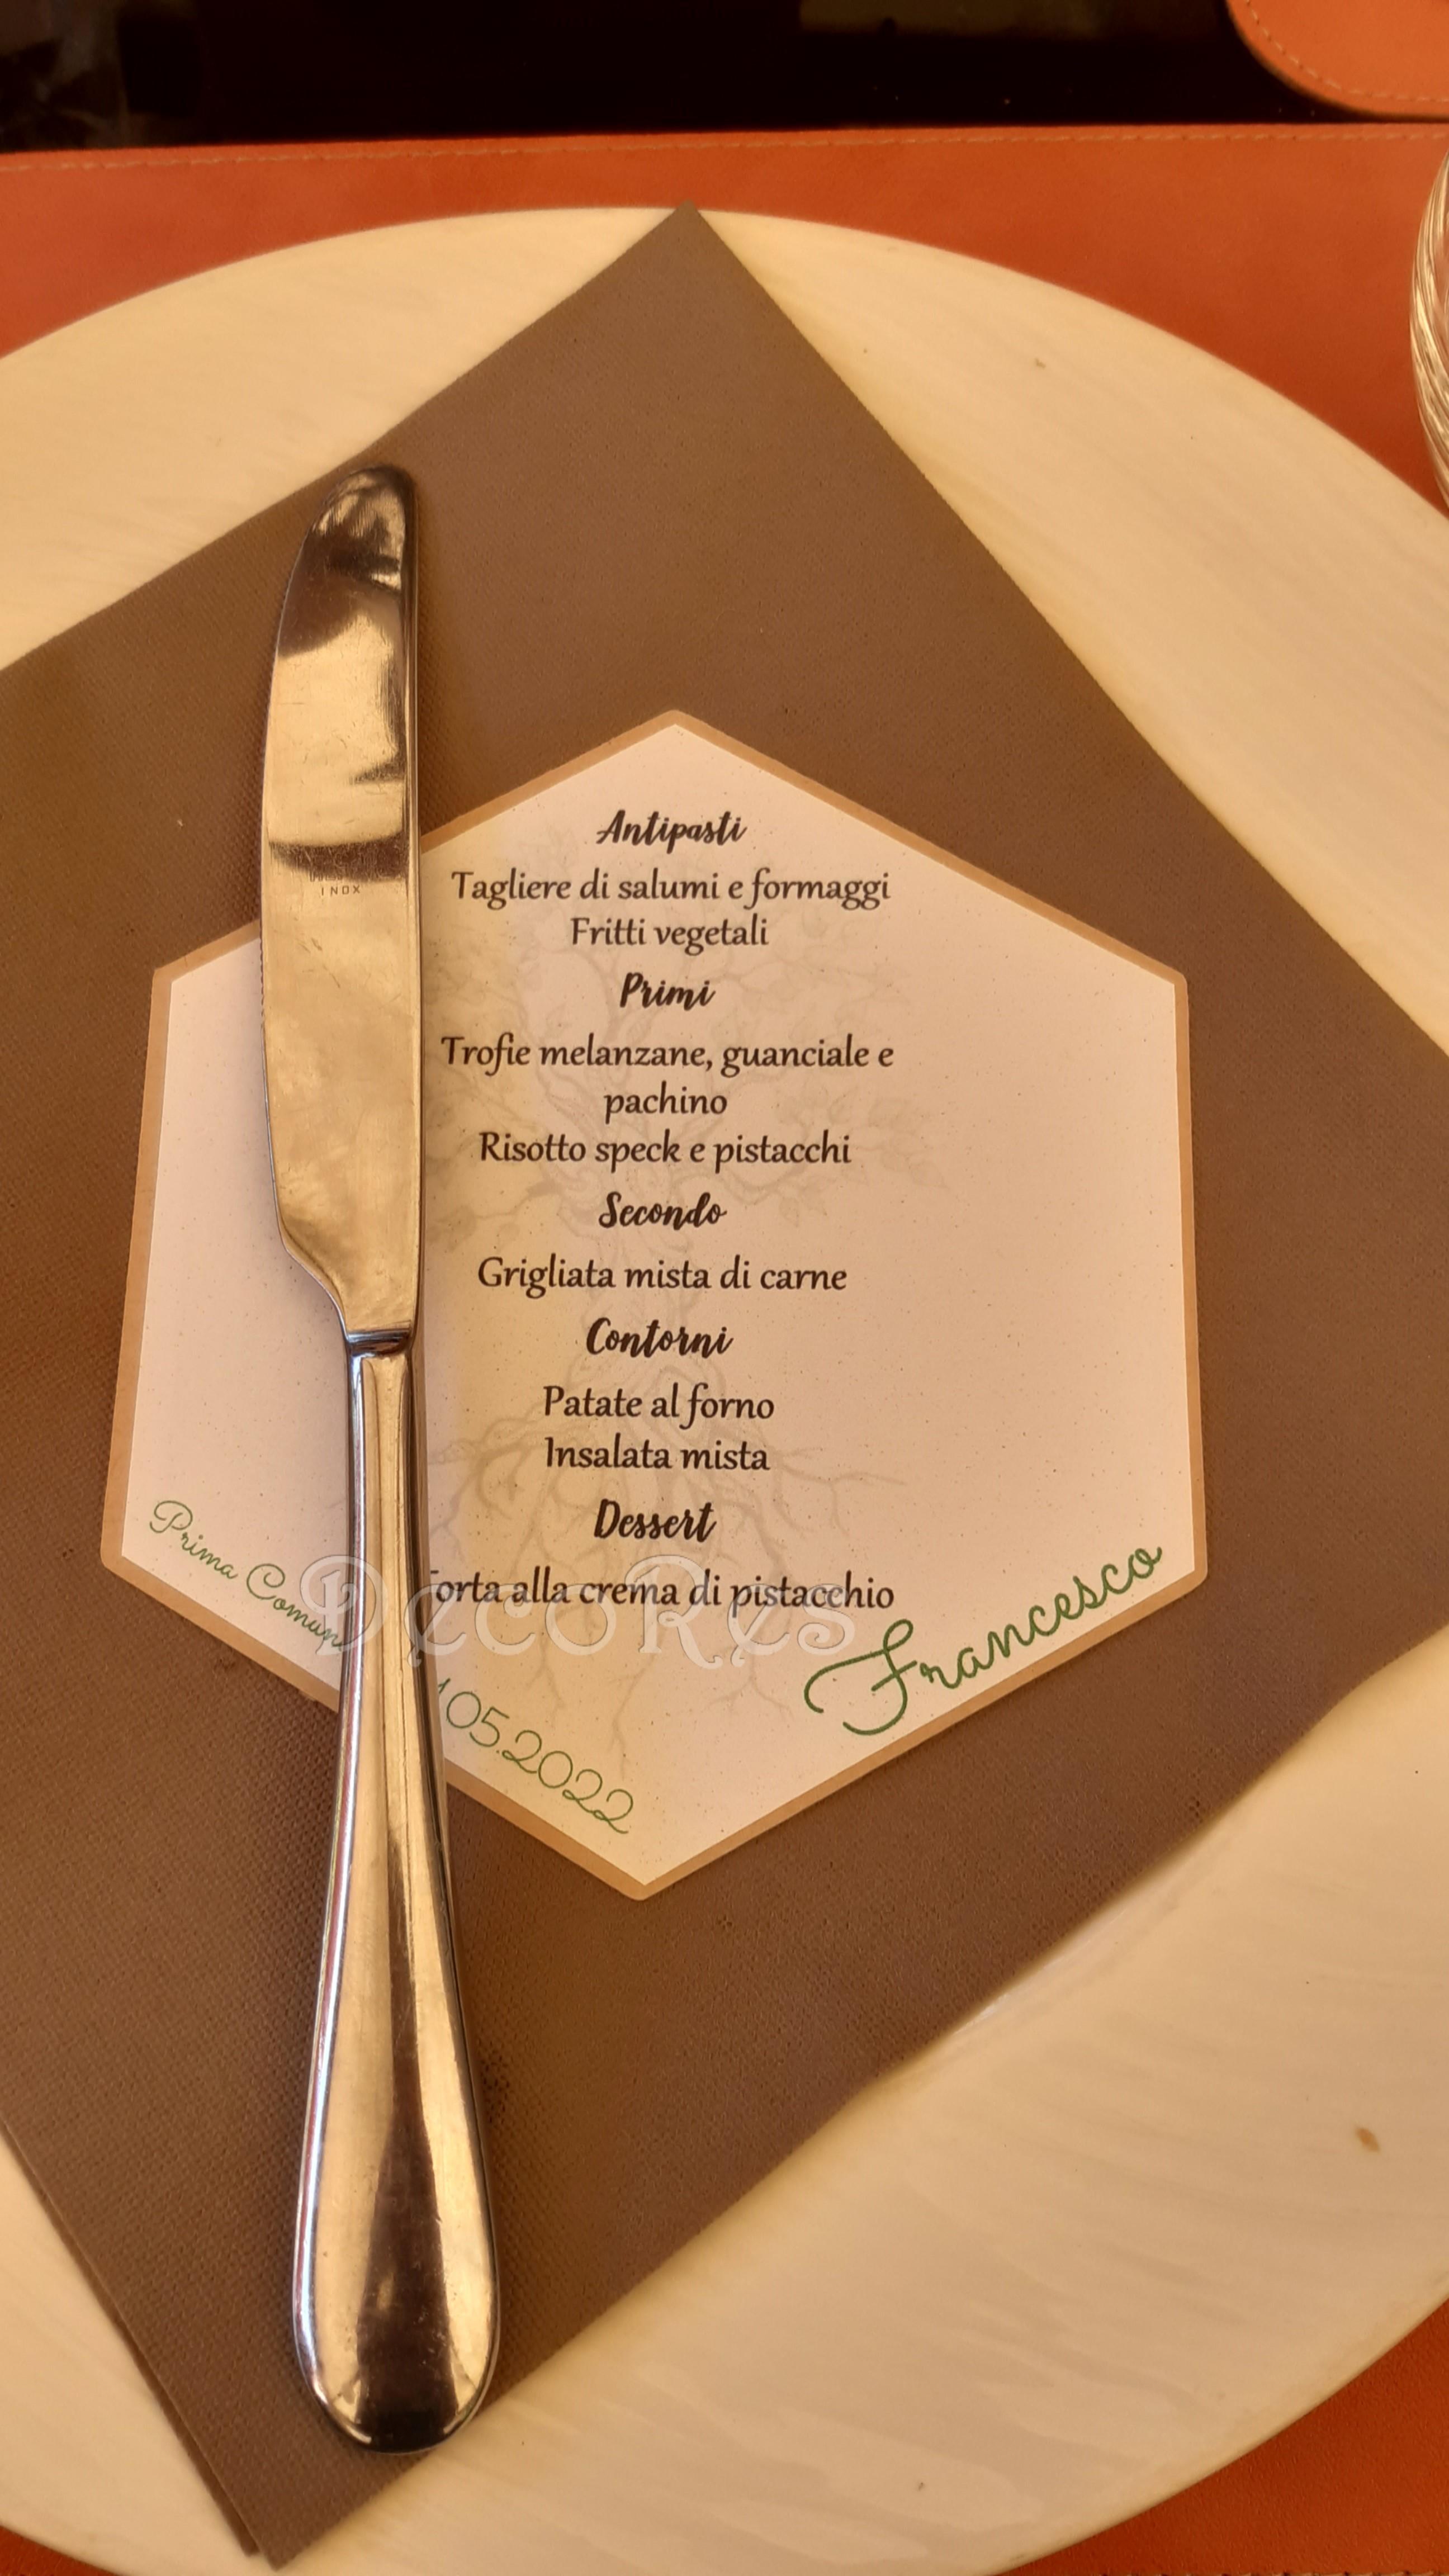 INOX
Antipasti
Tagliere di salumi e formaggi
Fritti vegetali
Primi
Trofie melanzane, guanciale e
pachino
Risotto speck e pistacchi
Secondo
Grigliata mista di carne
Contorni
Patate al forno
Insalata mista
Dessert
Torta alla crema di pistacchio
Prima Comun
05.2022
Francesco
DecoRes